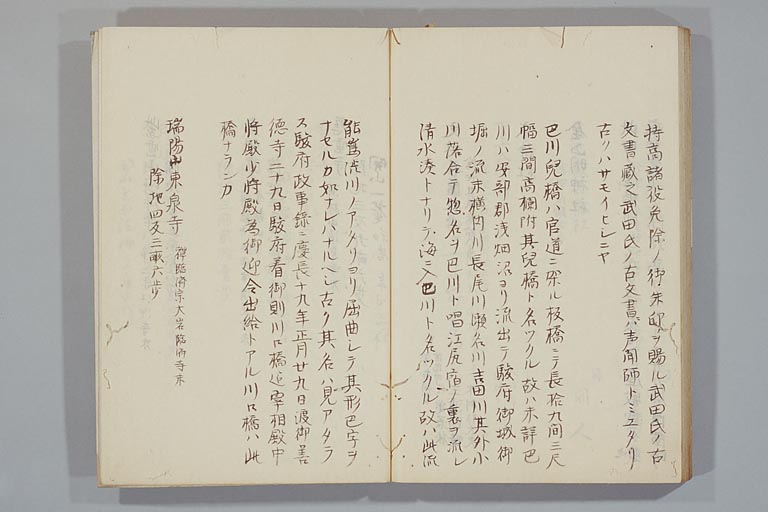 持高諸役免除ノ御朱印ヲ賜ル武田氏ノ古
文書蔵之武田氏ノ古文書ハ声聞師トミエタリ
古クハサモイヒシニヤ
巴川兒橋ハ官道ニ架ル板橋ニテ長拾九間三尺
幅三間高欄附其兒橋ト名ツクル故ハ未詳巴
川ハ安部郡浅畑沼ヨリ流出テ駿府御城御
堀ノ流末横内川長尾川瀬名川吉田川其外小
川落合テ惣名ヲ巴川ト唱江尻宿ノ裏ヲ流レ
清水湊トナリテ海ニ入巴川ト名ツクル故ハ此流
能嶌渋川ノアタリヨリ屈曲シテ其形巴字ヲ
ナセルカ如ナレハナルヘシ古ク其名ハ見アタラ
ス駿府政事録ニ慶長十九年正月廿九日渡御善
徳寺二十九日駿府着御則川口橋迄宰相殿中
将殿少将殿為御迎令出給トアル川口橋ハ此
橋ナランカ
瑞陽山東泉寺 禅臨済宗大岩臨済寺末
除地四反三畝六歩